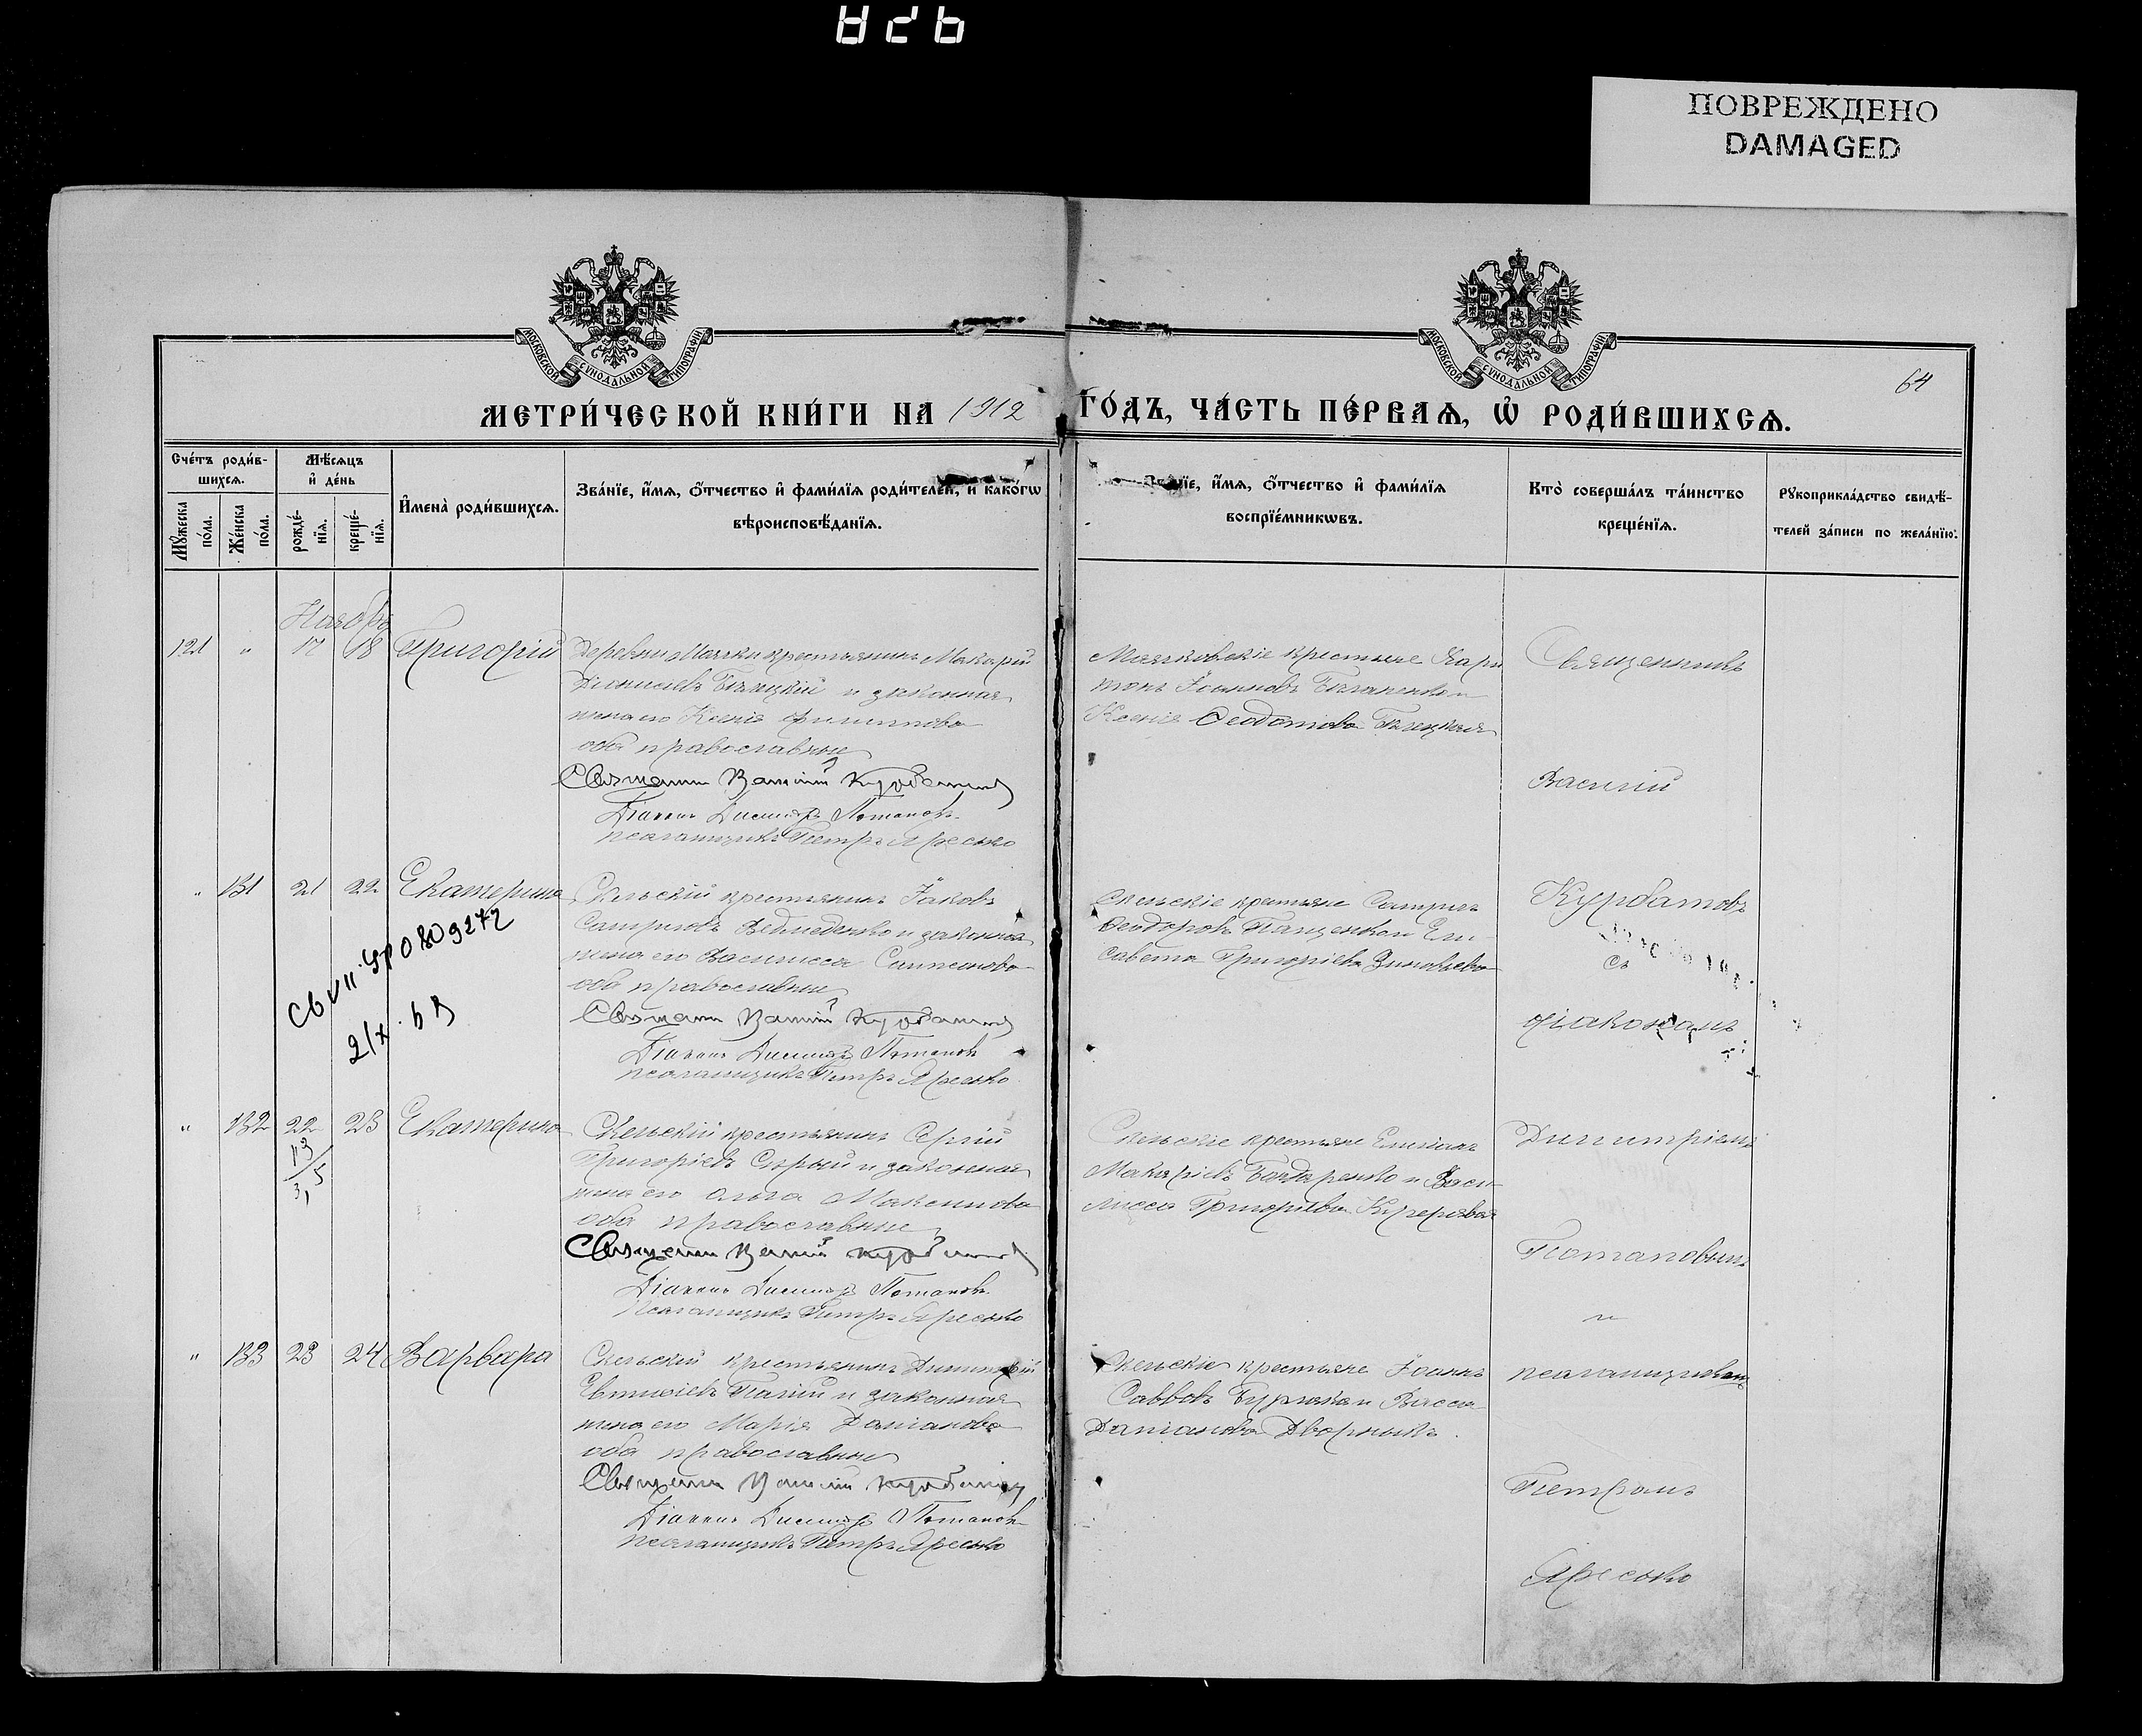 826
ПОВРЕЖДЕНО
DAMAGED
МОСКОВСКОЙ СѴНОДАЛЬНОЙ ТИПОГРАФІИ
МОСКОВСКОЙ СѴНОДАЛЬНОЙ ТИПОГРАФІИ
64
МЕТРИ́ЧЕСКОЙ КНИ́ГИ НА 1912 ГО́ДЪ, ЧА́СТЬ ПЕ́РВАѦ, Ѡ РОДИ́ВШИХСѦ.
Сче́тъ роди́в-
шихсѧ.
Мꙋжеска
по́ла.
Же́нска
по́ла.
Мѣ́сѧцъ
и҆ де́нь
рожде́-
нїѧ.
креще́-
нїѧ.
И҆мена̀ роди́вшихсѧ.
Зва́нїе, и҆́мѧ, ѻ҆́тчество и҆ фами́лїѧ роди́телей, и҆ како́гѡ
вѣроисповѣ́данїѧ.
Зва́нїе, и҆́мѧ, ѻ҆́тчество и҆ фами́лїѧ
воспрїе́мникѡвъ.
Кто̀ соверша́лъ та́инство
креще́нїѧ.
Рꙋкоприкла́дство свидѣ́-
телей за́писи по жела́нїю.
Ноябрь
121 " 17 18 Григорій
Деревни Маячки крестьянинъ Макарій
и законная
жена его Ксенія Филиппова
оба православные
Священникъ Василій Курбатовъ
Діаконъ Димитрій Потаповъ
Псаломщикъ Петръ Яресько
Маячковскіе крестьяне Хари
тонъ Іоанновъ
Ксенія Ѳеодотова
Священникъ
Василій
" 131 21 22 Екатерина
Скельскій крестьянинъ Іаковъ
Ведмеденко и законная
жена его Василисса
оба православные
Священникъ Василій Курбатовъ
Діаконъ Димитрій Потаповъ
Псаломщикъ Петръ Яресько
Скельскіе крестьяне
Ѳеодоровъ Пащенко и Ели
савета Григоріева Зиновьева
Курбатовъ
съ
діакономъ
0809272
" 132 22 23 Екатерина
13
3,5
Скельскій крестьянинъ Сергій
Григоріевъ Сѣрый и законная
жена его Ольга Максимова
оба православные
Священникъ Василій Курбатовъ
Діаконъ Димитрій Потаповъ
Псаломщикъ Петръ Яресько
Скельскіе крестьяне
Макаріевъ Бондаренко и Васи
лисса Григоріева
Димитріемъ
Потаповымъ
и
" 133 23 24 Варвара
Скельскій крестьянинъ Димитрій
Евтихіевъ и законная
жена его Марія Даміанова
оба православные
Священникъ Василій Курбатовъ
Діаконъ Димитрій Потаповъ
Псаломщикъ Петръ Яресько
Скельскіе крестьяне Іоаннъ
Саввовъ и Васса
Даміанова Дворникъ
псаломщикомъ
Петромъ
Яресько